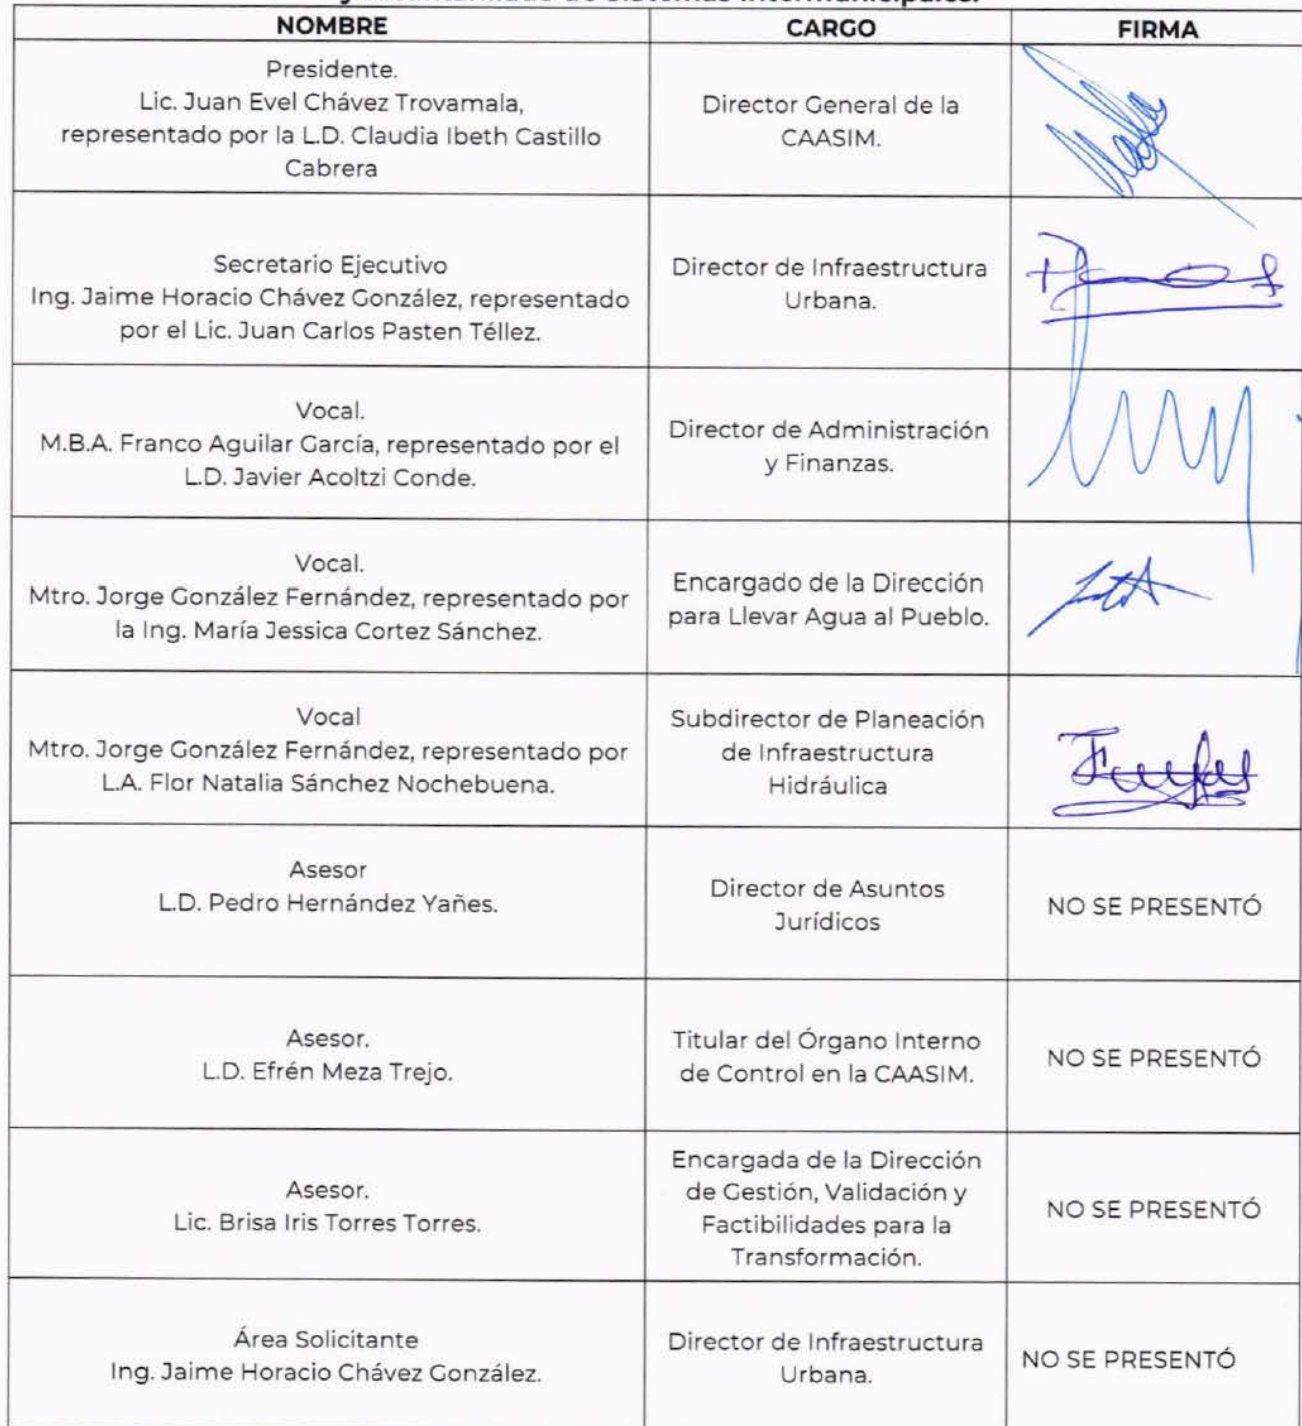 y Alcantarillado de Sistemas Intermunicipales.
NOMBRE CARGO FIRMA
Presidente.
Lic. Juan Evel Chávez Trovamala,
representado por la L.D. Claudia Ibeth Castillo
Cabrera
Director General de la
CAASIM.
Secretario Ejecutivo
Ing. Jaime Horacio Chávez González, representado
por el Lic. Juan Carlos Pasten Téllez.
Director de Infraestructura
Urbana.
Vocal.
M.B.A. Franco Aguilar García, representado por el
L.D. Javier Acoltzi Conde.
Director de Administración
y Finanzas.
Vocal.
Mtro. Jorge González Fernández, representado por
la Ing. María Jessica Cortez Sánchez.
Encargado de la Dirección
para Llevar Agua al Pueblo.
Vocal
Mtro. Jorge González Fernández, representado por
L.A. Flor Natalia Sánchez Nochebuena.
Subdirector de Planeación
de Infraestructura
Hidráulica
Asesor
L.D. Pedro Hernández Yañes.
Director de Asuntos
Jurídicos
NO SE PRESENTÓ
Asesor.
L.D. Efrén Meza Trejo.
Titular del Órgano Interno
de Control en la CAASIM.
NO SE PRESENTÓ
Asesor.
Lic. Brisa Iris Torres Torres.
Encargada de la Dirección
de Gestión, Validación y
Factibilidades para la
Transformación.
NO SE PRESENTÓ
Área Solicitante
Ing. Jaime Horacio Chávez González.
Director de Infraestructura
Urbana.
NO SE PRESENTÓ